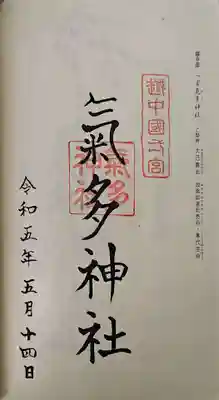 越中國一宮
氣多神社
氣多神社
令和五年五月十四日